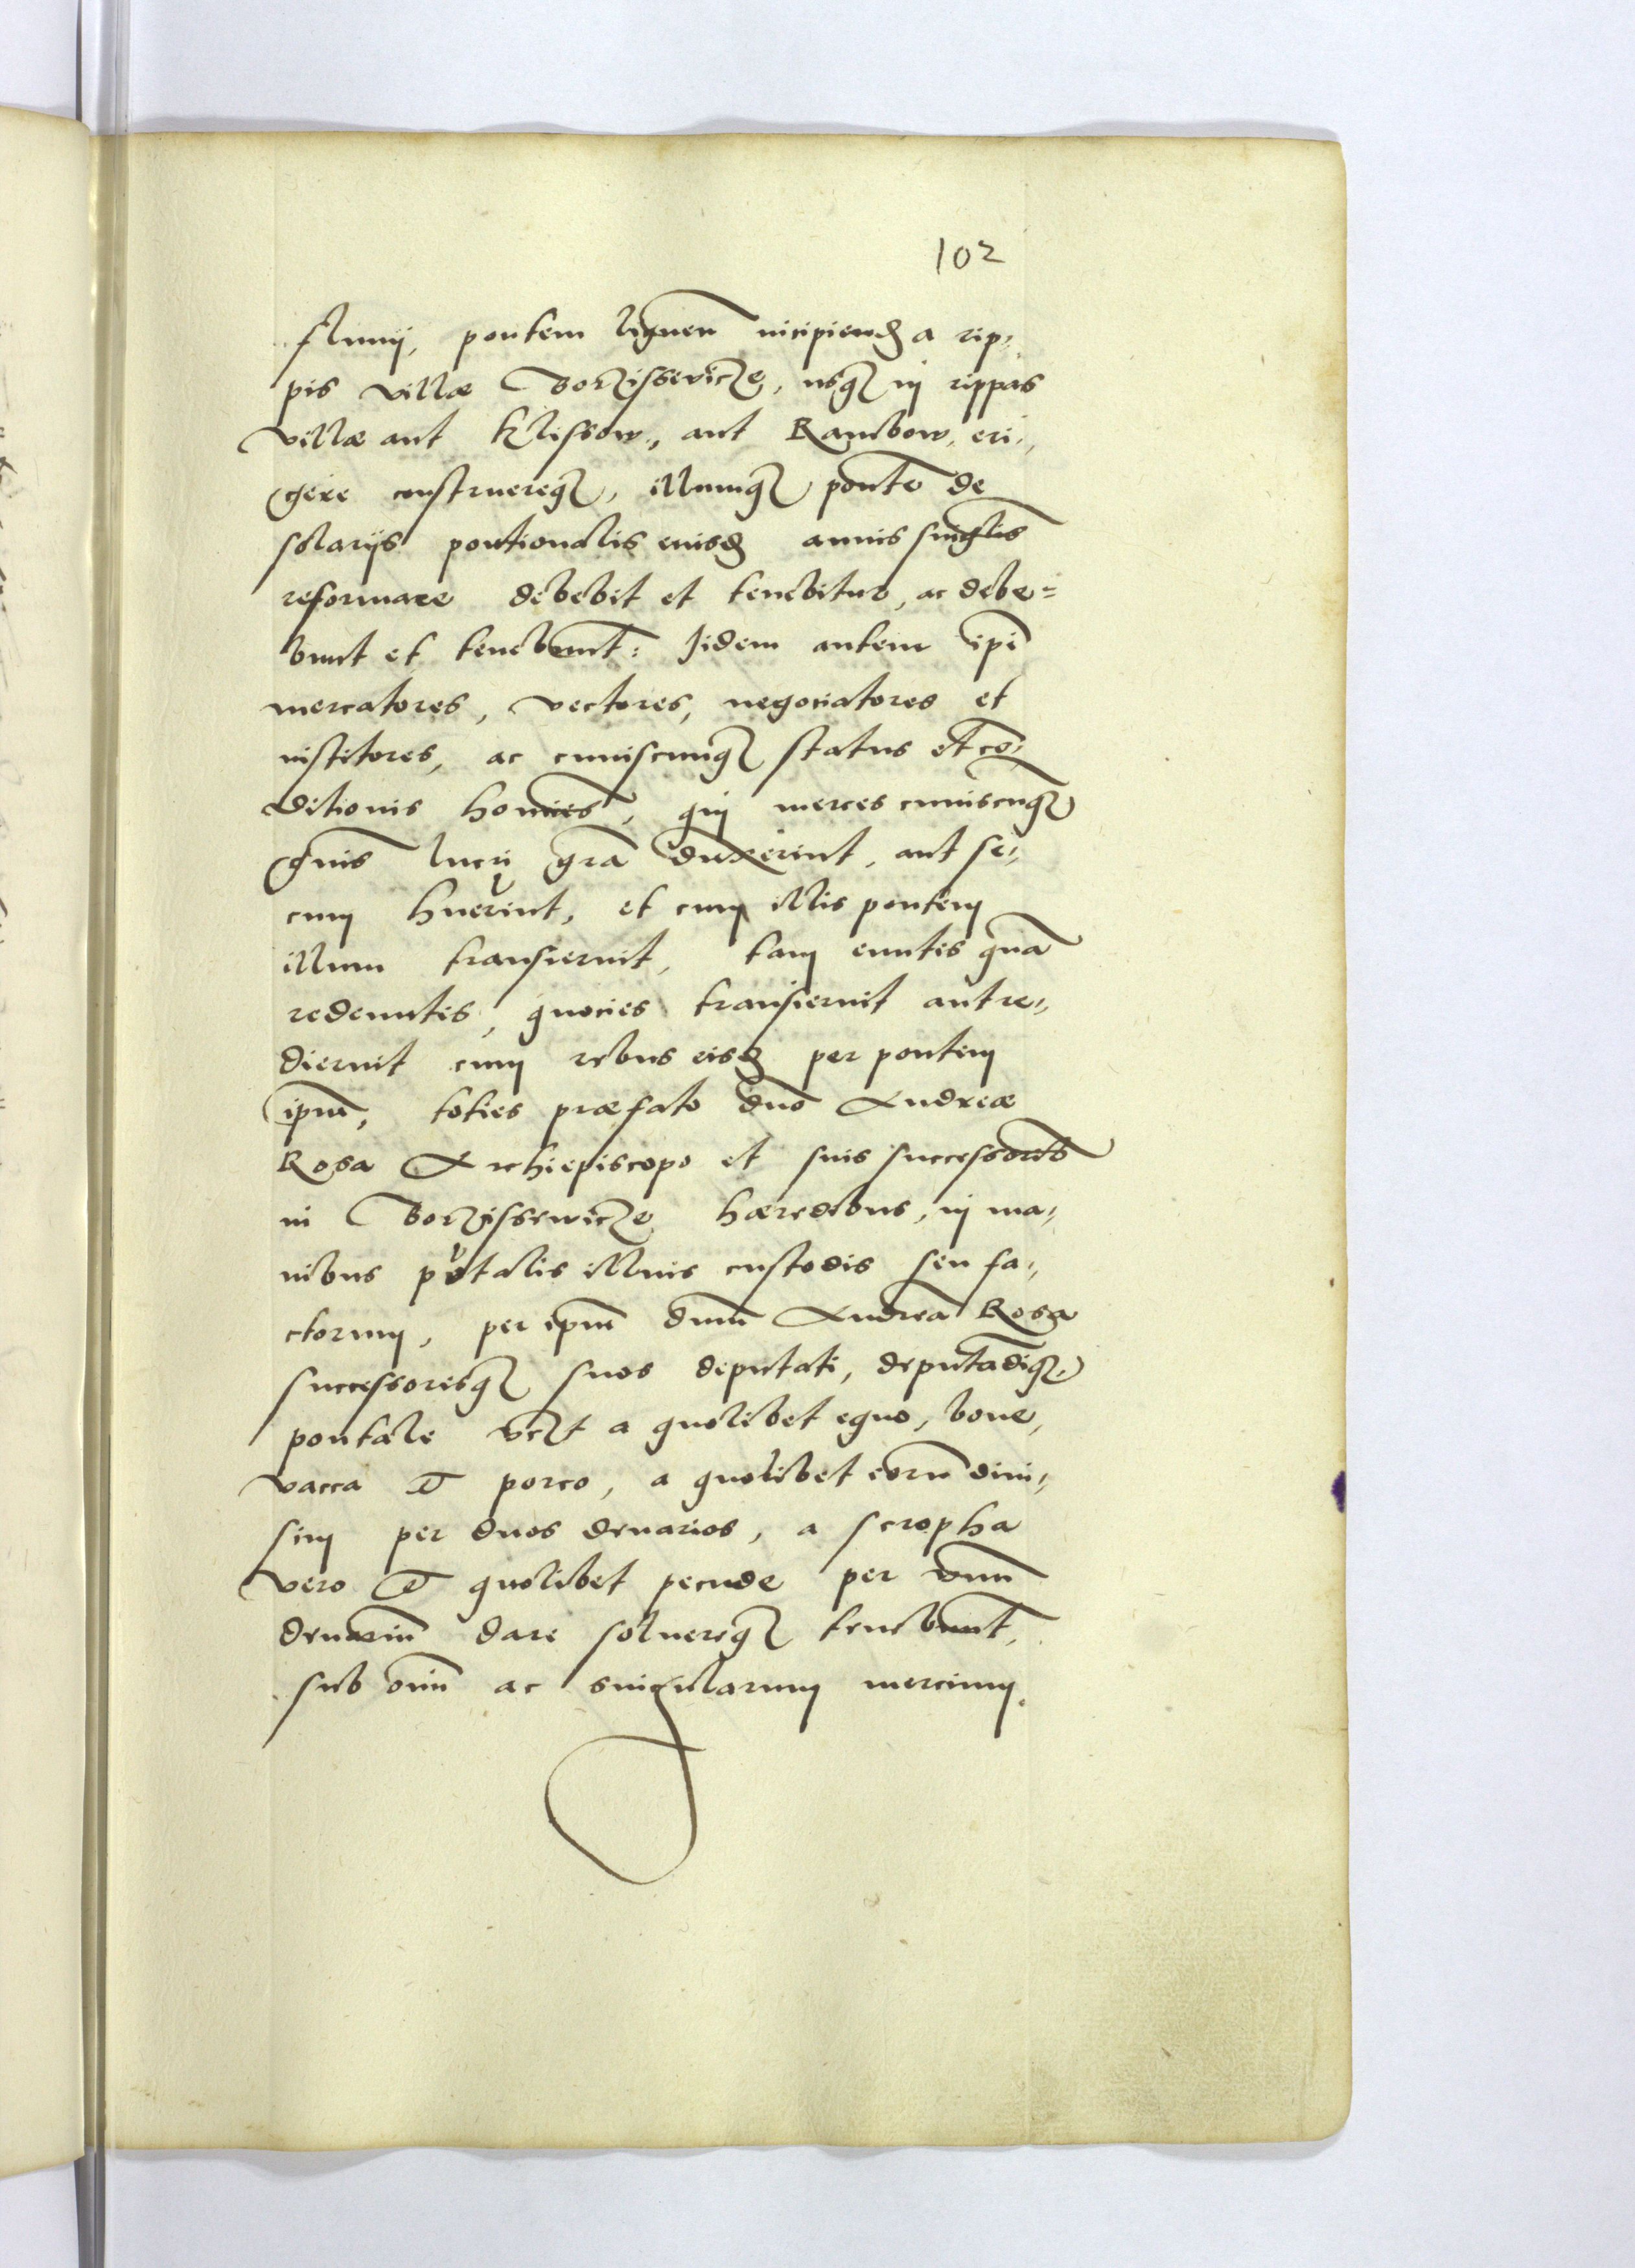 102
fluuij, pontemligneũ incipiend. a rip-
pis villæ Borzissewicze, usq3 in rippas
villæ aut Klissow, aut Rambow, eri-
gere construereq3, illumq3 ponte de
solarijs pontionalis eiusd. annis singlis
reformare debebit et tenebitur, ac debe=
bunt et tenebunt: Iidem autem ipi
mercatores, vectores, negociatores et
institores, ac cuiuscunq3 status et cõ-
ditionis hoines, qui merces cuiuscuq3
gnis lucri gra duxerint, aut se-
cum huerint, et cum illis pontem
illum transierint, tam euntes qua
redeuntes, quocies transierint aut re-
dierint cum rebus eisd. per pontem
ipm, toties præfato dno Andreæ
Rosa Archiepiscopo et suis successorib
in Borzissewicze hæredibus, in ma-
nibus potalis illius custodis seu fa-
ctorum, per ipm dnm Andrea Rosa
successoresq3 suos deputati, deputadiq3,
pontale vzt a quolibet equo, boue,
vacca et porco, a quolibet eoru diui-
sim per duos denarios, a scropha
vero et quolibet pecude per vnu
denariu dare soluereq3 tenebunt,
sub oim ac singularum mercium.